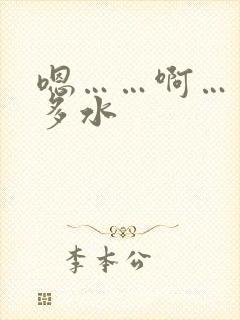 嗯……啊…
多水
李本公